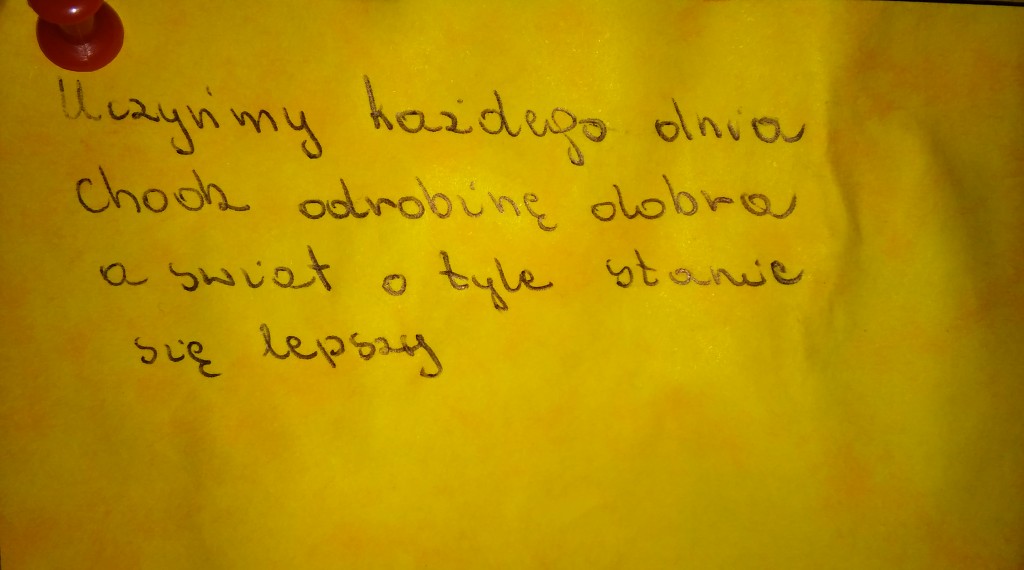 Uczyńmy każdego dnia
choćb odrobinę dobra
a swiat o tyle stanie
się lepszy